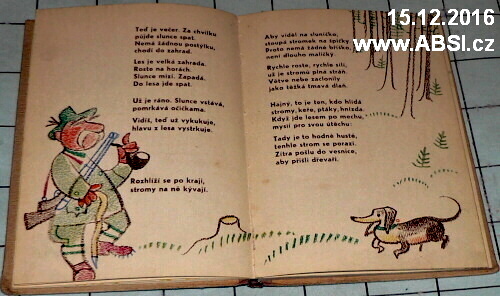 15.12.2016
www.ABSI.cz
Teď je večer. Za chvilku
půjde slunce spat.
Nemá žádnou postýlku,
chodí do zahrad.
Les je velká zahrada.
Roste na horách.
Slunce mizí. Zapadá.
Do lesa jde spat.
Už je ráno. Slunce vstává,
pomrkává očičkama.
Vidíš, teď už vykukuje,
hlavu z lesa vystrkuje.
Rozhlíží se po kraji,
stromy na ně kývají.
Aby viděl na sluníčko,
stoupá stromek na špičky.
Proto nemá žádné bříško,
není dlouho maličký.
Rychle roste, rychle sílí,
už je stromu plná stráň.
Větve nebe zaclonily
jako těžká tmavá dlaň.
Hajný, to je ten, kdo hlídá
stromy, keře, ptáky, hnízda.
Když jde lesem po mechu,
myslí pro svou útěchu:
Tady je to hodně husté,
tenhle strom se porazí.
Zítra pošlu do vesnice,
aby přišli dřevaři.